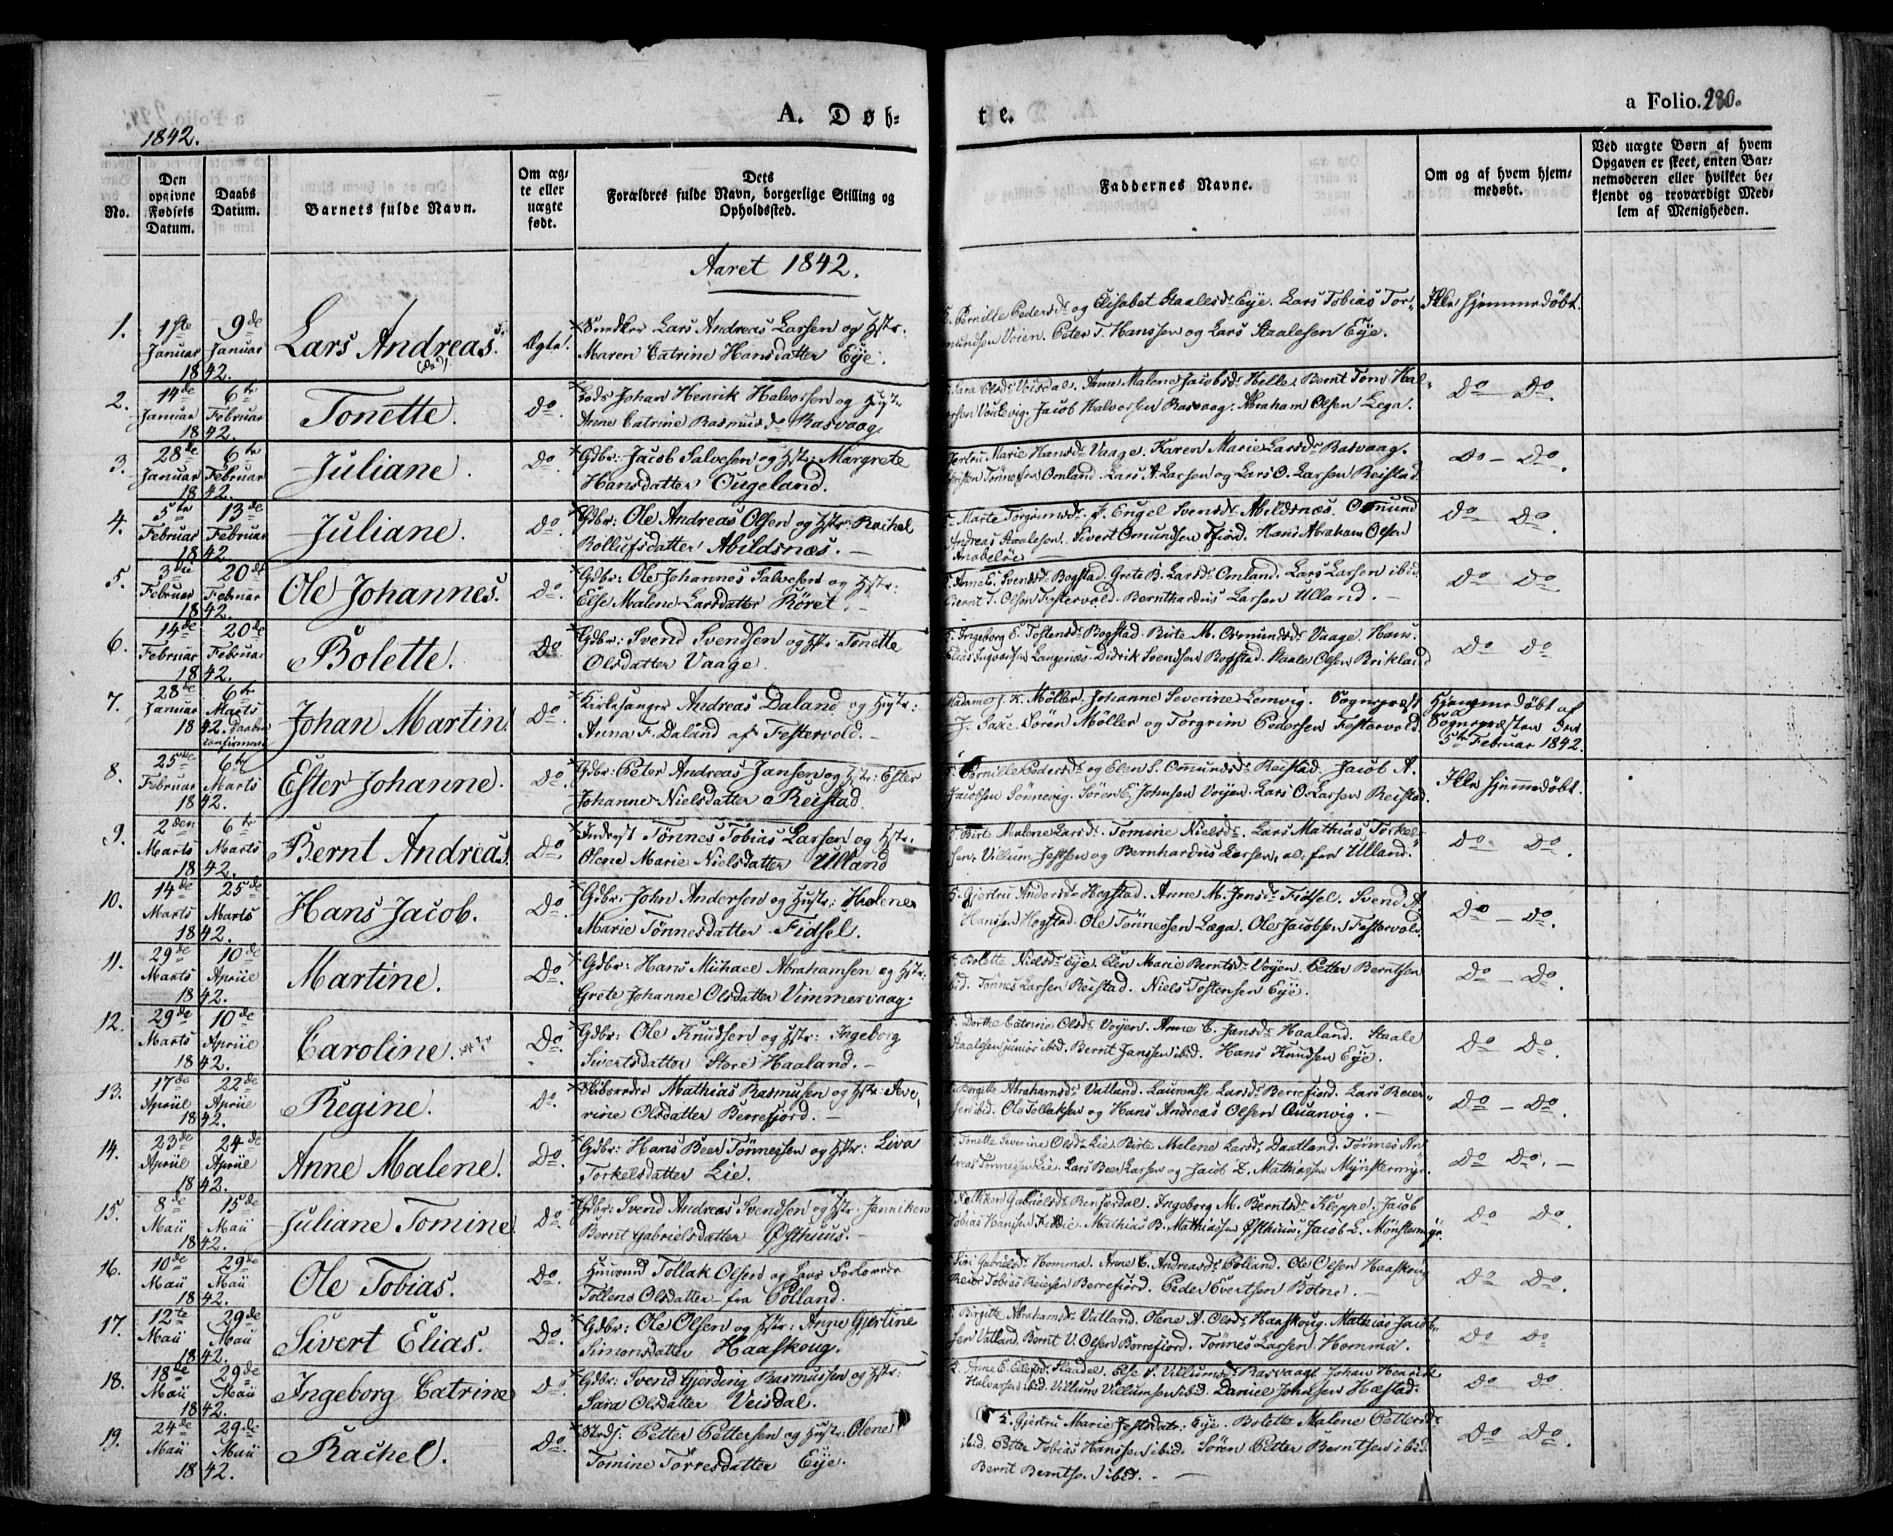 A. Døb=
te.
a Folio. 280.
1842.
No.
Den opgivne Fødsels Datum.
Daabs Datum.
Barnets fulde Navn.
Om ægte eller uægte født.
Dets Forældres fulde Navn, borgerlige Stilling og Opholdssted.
Faddernes Navne.
Om og af hvem hjemmedøbt.
Ved uægte Børn af hvem Opgaven er skeet, enten Barnemoderen eller hvilket bekjendt og troværdigt Medlem af Menigheden.
Aaret 1842.
1. 1ste Januar 9de Januar 1842. Lars Andreas. Ægte.
Lars Andreas Larsen og Hstr:
Maren Catrine Hansdatter Eye.
Pernille Pedersdr og Elisabet Staalesdr Eye. Lars Tobias Tor=
mundsen Voien. Peter T. Hanssen og Lars Staalesen Eye.
Ikke hjemmedøbt.
2. 14de Januar 6te Februar 1842. Tonette. Do.
Johan Henrik Halvorsen og Hust:
Anne Catrine Rasmusdr Rasvaag
Sara Olsdr Veisdal. Anne Malene Jacobsdr Helle. Bernt Tom Hal=
Jacob Halvorsen Rasvaag. Abraham Olsen Lega.
Do Do.
3. 28de Januar 6te Februar 1842. Juliane. Do.
Gdbr: Jacob Salvesen og Hstr: Margrete
Hansdatter Ougeland.
Marie Hansdr Vaage. Karen Marie Larsdr Rasvaag.
Tønnesen Omland. Lars A. Larsen og Lars O. Larsen Reistad.
Do Do.
4. 5te Februar 13de Februar 1842. Juliane. Do.
Gdbr: Ole Andreas Olsen og Hstr: Rachel
Rollufsdatter Abildsnæs.
Marte Torgrimsdr. Engel Svensdr Abildsnæs. Omund
Andreas Staalesen. Sivert Omundsen Fjord. Hans Abraham Olsen
Anabeløe
Do Do.
5. 3die Februar 20de Februar 1842. Ole Johannes. Do.
Gdbr: Ole Johannes Salvesen og Hstr:
Else Malene Larsdatter Røret.
Anne E. Svensdr Bogstad. Grete B. Larsdr Omland. Lars Larsen ibid.
Bernt T. Olsen Festervold. Bernthardus Larsen Ulland.
Do Do
6. 14de Februar 20de Februar 1842. Bolette. Do
Gdbr: Svend Svendsen og Hstr: Tonette
Olsdatter Vaage.
Ingeborg E. Tostensdr Bogstad. Birte M. Osmundsdr Vaage. Hans
Elias Langenæs. Didrik Svendsen Bogstad. Staale Olsen Brikland
Do Do
7. 28de Januar 6te Marts 1842. Daaben confirmeret Johan Martin. Do.
Kirkesanger Andreas Daland og Hustr:
Anna F. Daland af Festervold.
Madame J. K. Møller, Johanne Severine Lemvig. Sognepræst
J. Saxe. Søren Møller og Torgrim Pedersen Festervold.
Hjemmedøbt af
Sognepræsten den
5te Februar 1842.
8. 25de Februar 6te Marts 1842. Ester Johanne. Do.
Gdbr: Peter Andreas Jansen og Hstr: Ester
Johanne Nielsdatter Reistad.
Pernille Pedersdr og Elen S. Omundsdr Reistad. Jacob A.
Jacobsen Sønnevig. Søren E. Johnsen Voijen. Lars O. Larsen Reistad.
Ikke hjemmedøbt.
9. 2den Marts 6te Marts 1842. Bernt Andreas. Do.
Tønnes Tobias Larsen og Hstr:
Olene Marie Nielsdatter Ulland
Birte Malene Larsdr. Tomine Nielsdr. Lars Mathias Torkel=
sen. Villum Jestsen og Bernhardus Larsen, al. fra Ulland.
Do Do.
10. 14de Marts 25de Marts 1842. Hans Jacob. Do.
Gdbr: John Andersen og Hustr: Helene
Marie Tønnesdatter Fidsel.
Gjertru Andersdr Hogstad. Anne M. Jensdr Fidsel. Svend A.
Hanssen Hogstad. Ole Tønnessen Læga. Ole Jacobsen Festervold.
Do Do.
11. 29de Marts 10de Apriil 1842. Martine. Do.
Gdbr: Hans Michael Abrahamsen og Hstr:
Grete Johanne Olsdatter Vimmervaag.
Bolette Nielsdr Eye. Elen Marie Berntsdr Voyen. Petter Berntsen
ibid. Tønnes Larsen Reistad. Niels Tostensen Eye.
Do Do.
12. 29de Marts 10de Apriil 1842. Caroline. Do.
Gdbr: Ole Knudsen og Hstr: Ingeborg
Sivertsdatter Store Haaland.
Dorthe Catrine Olsdr Voyen. Anne C. Jansdr Haaland. Staale
Staalesen junior ibid. Bernt Janssen ibid. Hans Knudsen Eye.
Do Do.
13. 17de Apriil 22de Apriil 1842. Regine. Do.
Mathias Rasmusen og Hstr: Seve=
rine Olsdatter Berrefjord.
Borgitte Abrahamsdr Vatland. Laurentse Larsdr Berrefjord. Lars Reier=
sen ibid. Ole Tollaksen og Hans Andreas Olsen Quanvig.
Do Do.
14. 23de Apriil 24de Apriil 1842. Anne Malene. Do.
Gdbr: Hans Beer Tønnessen og Hstr: Liva
Torkelsdatter Lie.
Tonette Severine Olsdr Lie. Birte Malene Larsdr Daatland. Tønnes An=
dreas Tønnessen Lie. Lars Beer Larsen og Jacob L. Mathiassen Mynstermyr.
Do Do.
15. 8de Maii 15de Maii 1842. Juliane Tomine. Do.
Gdbr: Svend Andreas Svendsen og Hstr: Janniken
Bernt Gabrielsdatter Østhuus.
Gabrielsdr Benjordal. Ingeborg M. Berntsdr Kleppe. Jacob
Tobias Hansen Mathias B. Mathiassen Østhuus. Jacob L. Mønstermyr.
Do Do.
16. 10de Maii 29de Maii 1842. Ole Tobias. Do.
Tollak Olsen og hans Forlovede
Tollena Olsdatter fra Colland.
Siri Gabrielsdr Homma. Anne C. Andreasdr Colland. Ole Olsen Haaskoug
Reier Tobias Reiersen Berrefjord. Peder Evertsen Botne.
Do Do.
17. 12te Maii 29de Maii 1842. Sivert Elias. Do.
Gdbr: Ole Olsen og Hstr: Anne Gjertine
Simonsdatter Haaskoug.
Birgitte Abrahamsdr Vatland. Olene A. Olsdr Haaskoug. Mathias Jacob=
sen Vatland. Bernt V. Olsen Borrefjord. Tønnes Larsen Homma.
Do Do
18. 18de Maii 29de Maii 1842. Ingeborg Catrine Do.
Gdbr: Svend Gjerding Rasmussen og Hstr:
Sara Olsdatter Veisdal.
Anne E. Staadel. Else S. Villumsdr Rasvaag. Johan Henrik
Halvorsen ibid. Villum Villumsen ibid. Daniel Johnsen Hæstad.
Do Do.
19. 24de Maii 29de Maii 1842. Rachel. Do.
Petter Pettersen og Hustr: Olene
Tomine Torresdatter Eye.
Gjertru Marie Jestsdatr: Eye. Bolette Malene Pettersdr
ibid. Petter Tobias Hanssen ibid. Søren Petter Berntsen ibid.
Bernt Berntsen ibid.
Do Do.